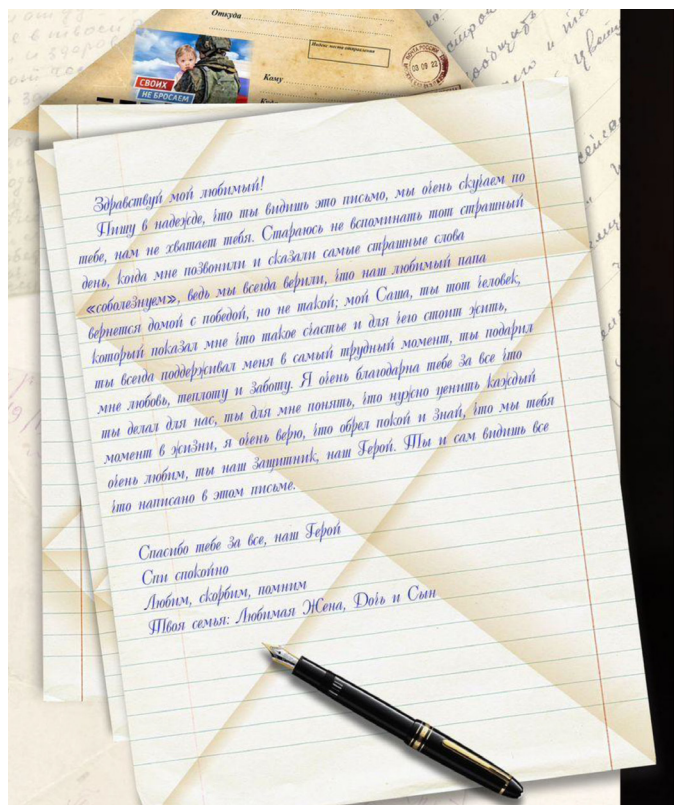 Откуда
Индекс места отправления
ПОЧТА РОССИИ
03 09 22
Кому
СВОИХ
НЕ БРОСАЕМ
Здравствуй мой любимый!
Пишу в надежде, что ты видишь это письмо, мы очень скучаем по
тебе, нам не хватает тебя. Стараюсь не вспоминать тот страшный
день, когда мне позвонили и сказали самые страшные слова
«соболезнуем», ведь мы всегда верили, что наш любимый папа
вернется домой с победой, но не такой; мой Саша, ты тот человек,
который показал мне что такое счастье и для чего стоит жить,
ты всегда поддерживал меня в самый трудный момент, ты подарил
мне любовь, теплоту и заботу. Я очень благодарна тебе за все что
ты делал для нас, ты для мне понять, что нужно ценить каждый
момент в жизни, я очень верю, что обрел покой и знай, что мы тебя
очень любим, ты наш защитник, наш Герой. Ты и сам видишь все
что написано в этом письме.
Спасибо тебе за все, наш Герой
Спи спокойно
Любим, скорбим, помним
Твоя семья: Любимая Жена, Дочь и Сын